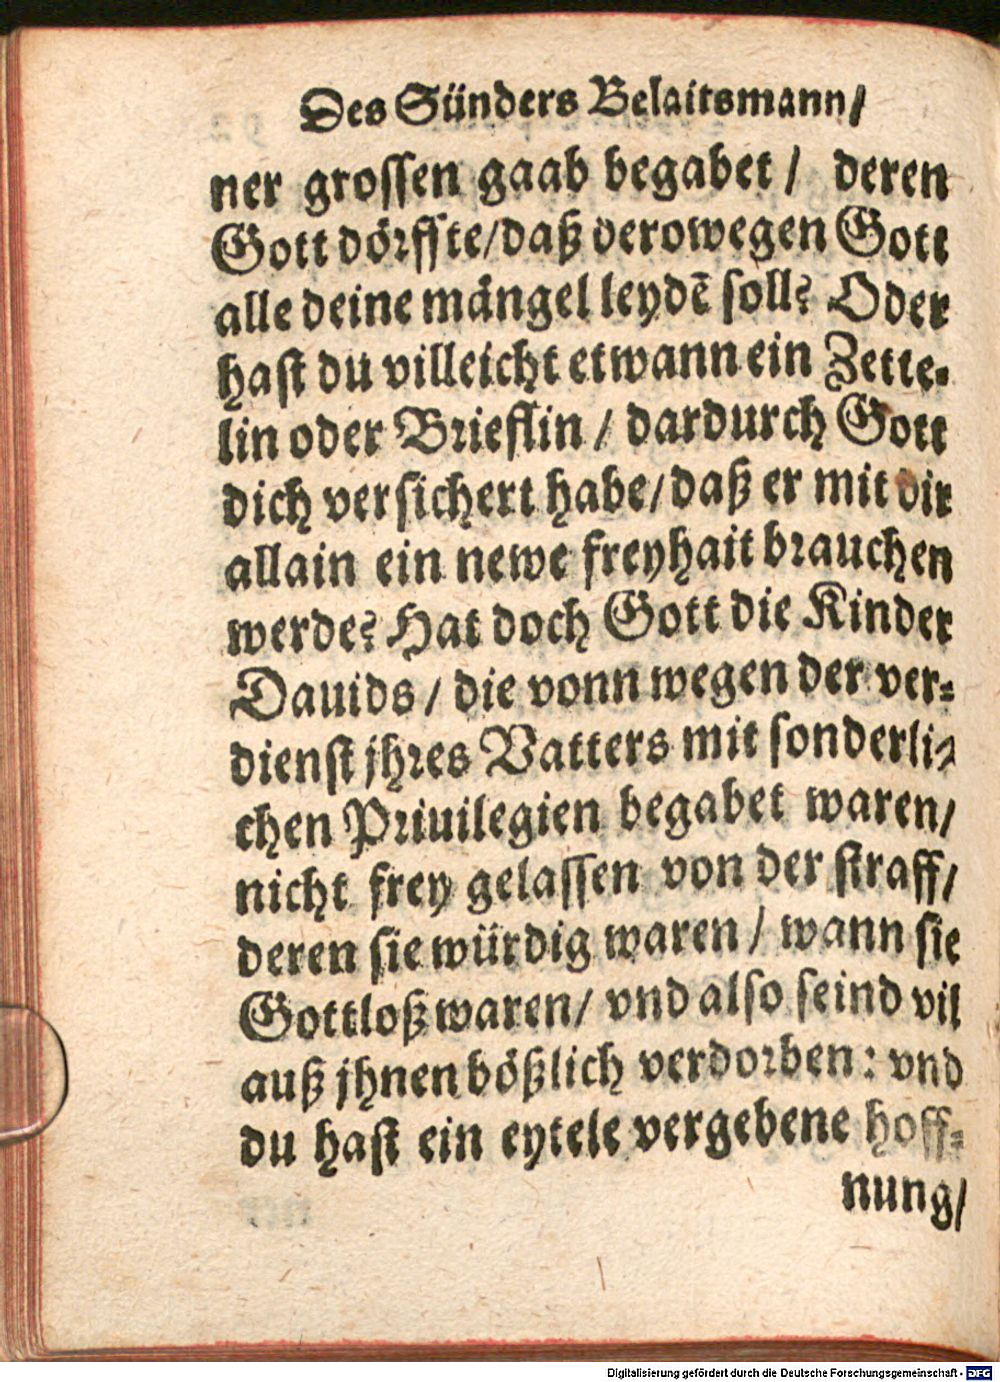 Des Sünders Belaitsmann/
ner grossen gaab begabet / deren
Gott dörffte/daß derowegen Gott
alle deine mängel leydē soll? Oder
hast du villeicht etwann ein Zette-
lin oder Brieflin / dardurch Gott
dich versichert habe/daß er mit dir
allain ein newe freyhait brauchen
werde? Hat doch Gott die Kinder
Dauids / die vonn wegen der ver-
dienst jhres Vatters mit sonderli-
chen Priuilegien begabet waren/
nicht frey gelassen von der straff/
deren sie würdig waren / wann sie
Gottloß waren/ vnd also seind vil
auß jhnen bößlich verdorben: vnd
du hast ein eytele vergebene hoff-
nung/
Digitalisierung gefördert durch die Deutsche Forschungsgemeinschaft - DFG